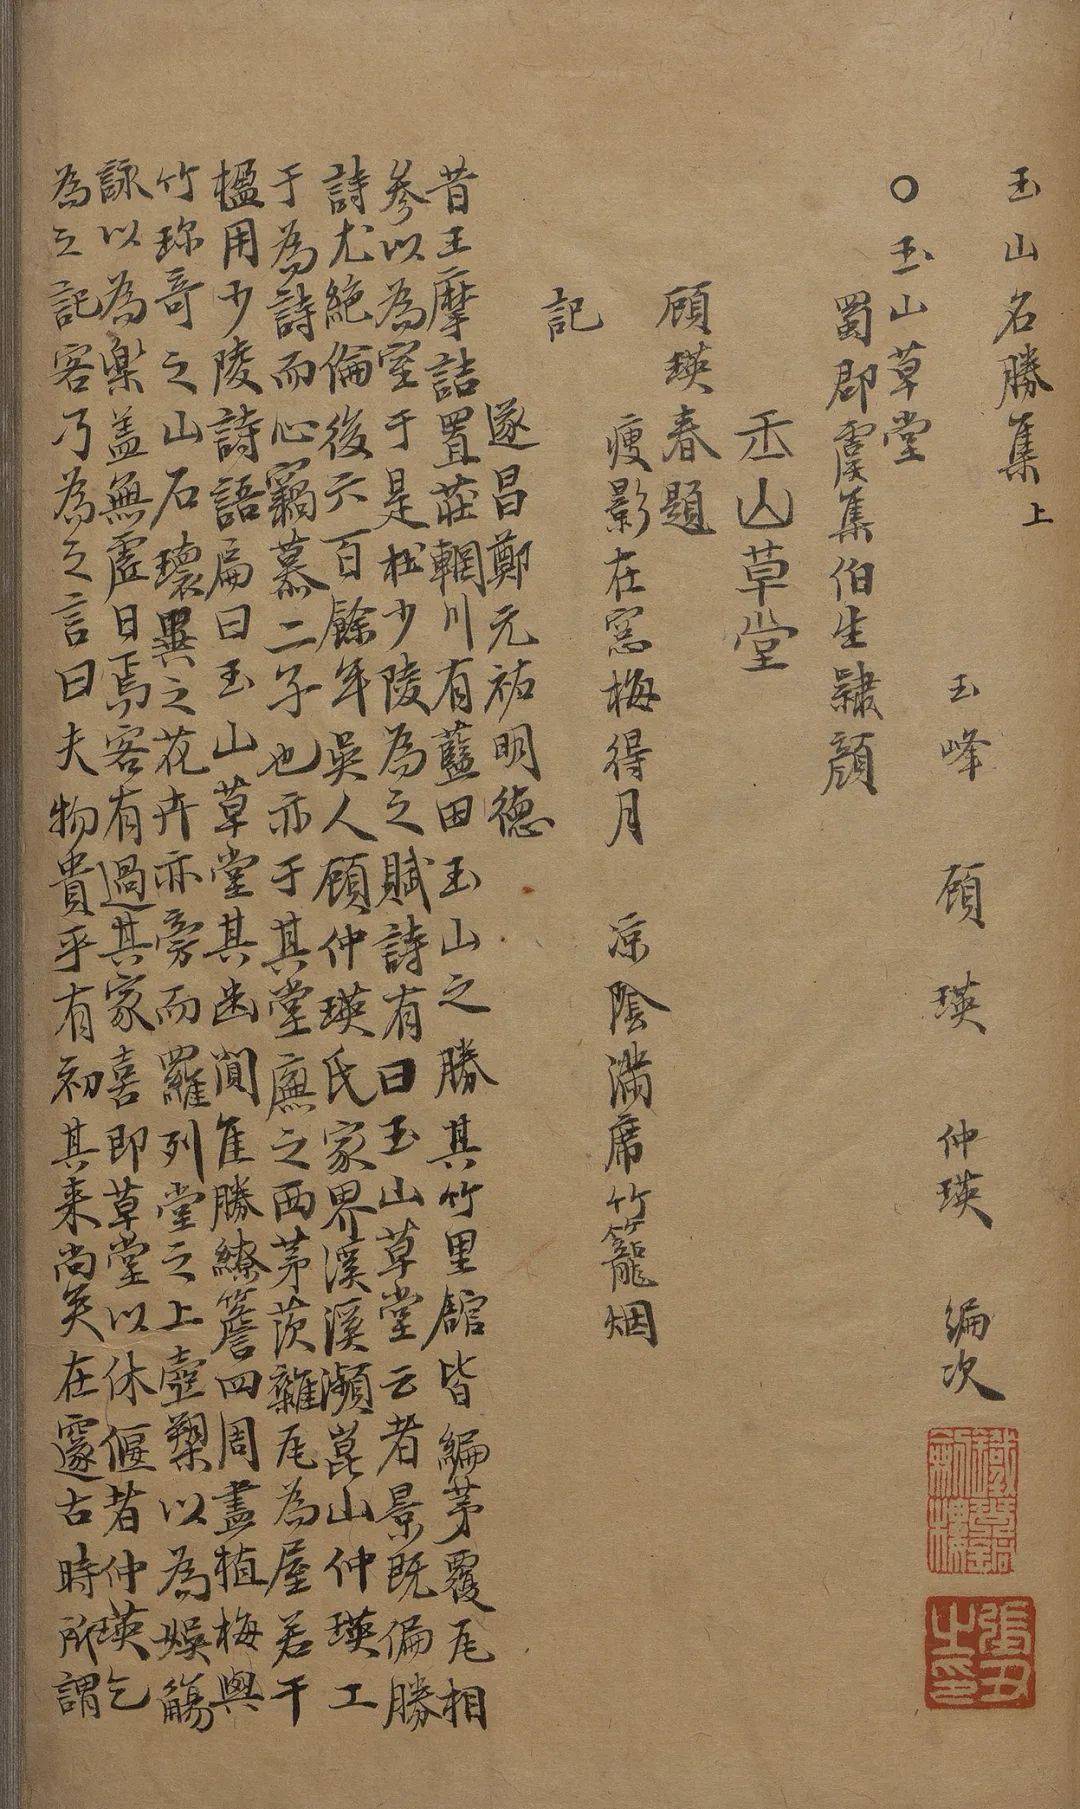 玉山名勝集上
玉峰 顧瑛 仲瑛 編次
○玉山草堂
蜀郡虞集伯生隸顏
玉山草堂
顧瑛春題
瘦影在窓梅得月 涼陰滿席竹籠烟
記
遂昌鄭元祐明德
昔王摩詰置莊輞川有藍田玉山之勝其竹里館皆編茅覆瓦相
參以為室于是杜少陵為之賦詩有曰玉山草堂云者景既偏勝
詩尤絕倫後六百餘年吳人顧仲瑛氏家界溪溪瀕崑山仲瑛工
于為詩而心竊慕二子也亦于其堂廡之西茅茨雜瓦為屋若干
楹用少陵詩語扁曰玉山草堂其幽閒隹勝繚簷四周盡植梅與
竹珎奇之山石瓌異之花卉亦旁而羅列堂之上壺槊以為娛觴
詠以為樂盖無虛日焉客有過其家喜即草堂以休偃者仲瑛乞
為之記客乃為之言曰夫物貴乎有初其来尚矣在邃古時所謂
張丑之印